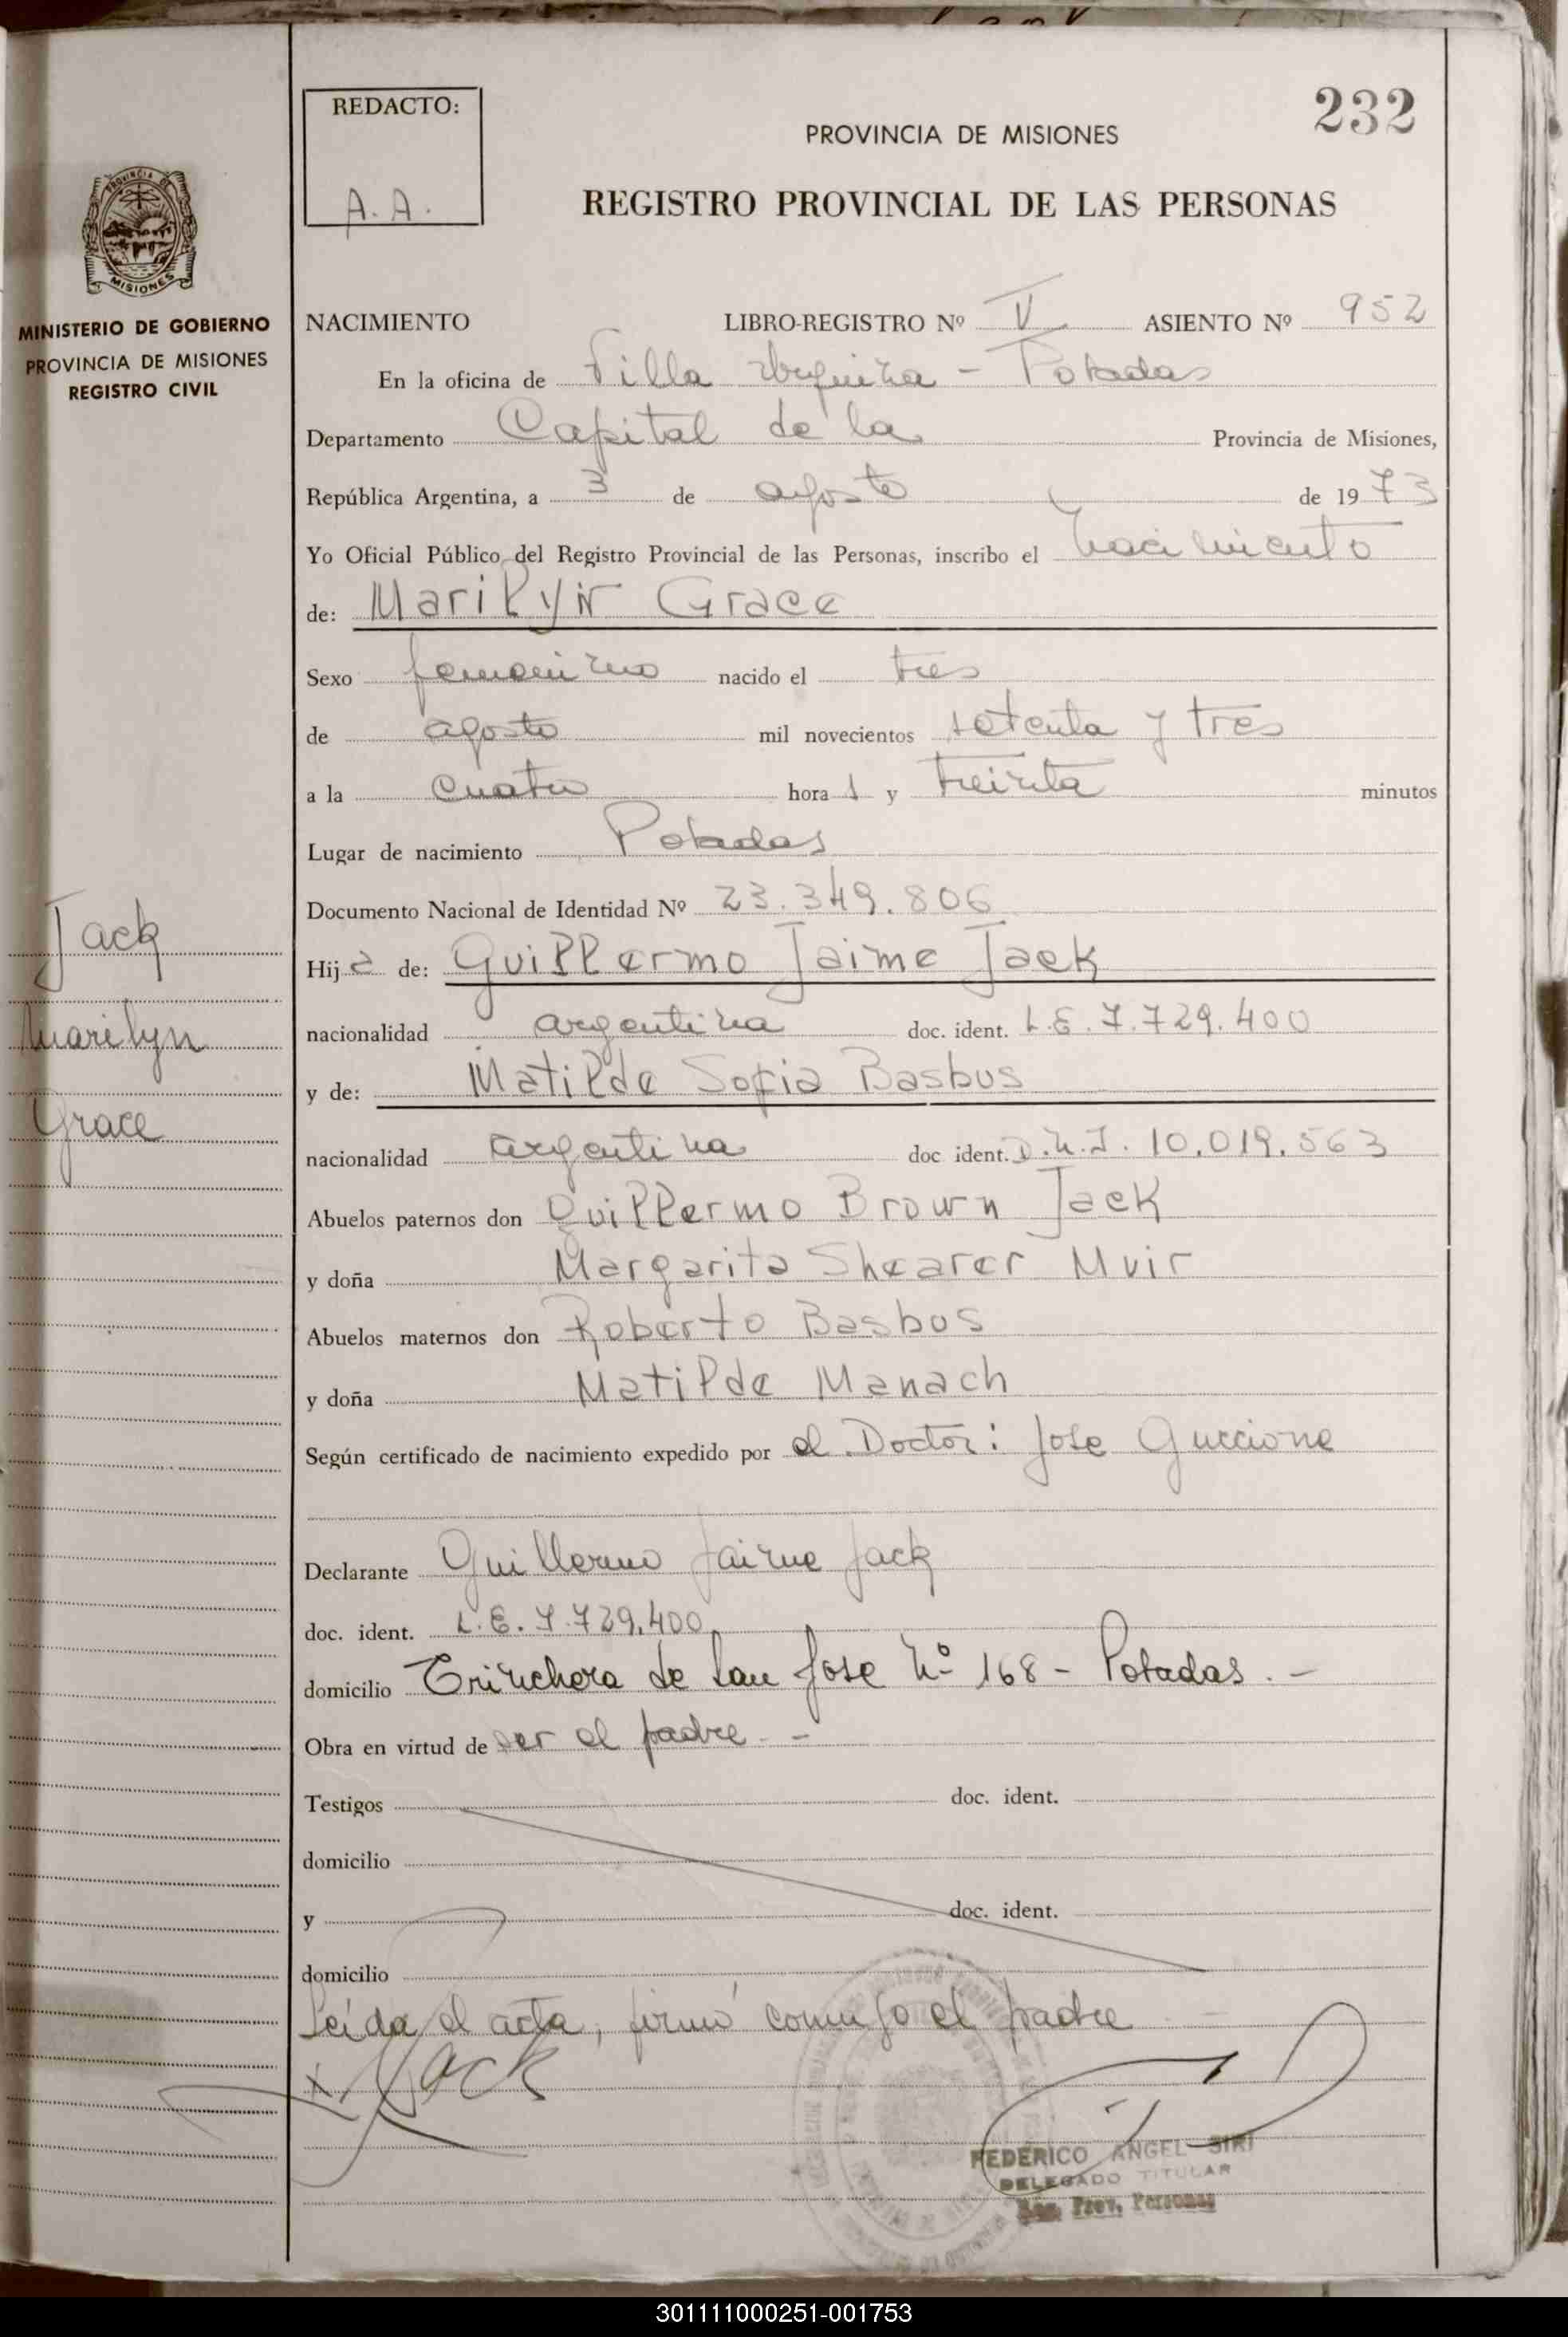 232
REDACTO:
A. A.
PROVINCIA DE MISIONES
REGISTRO PROVINCIAL DE LAS PERSONAS
PROVINCIA DE
MISIONES
MINISTERIO DE GOBIERNO
PROVINCIA DE MISIONES
REGISTRO CIVIL
NACIMIENTO LIBRO-REGISTRO Nº V ASIENTO Nº 952
En la oficina de Villa Urquiza - Posadas
Departamento Capital de la Provincia de Misiones,
República Argentina, a 3 de agosto de 1973
Yo Oficial Público del Registro Provincial de las Personas, inscribo el nacimiento
de: Marilyn Grace
Sexo femenino nacido el tres
de agosto mil novecientos setenta y tres
a la cuatro hora s y treinta minutos
Lugar de nacimiento Posadas
Documento Nacional de Identidad Nº 23.349.806
Hij a de: Guillermo Jaime Jack
nacionalidad argentina doc. ident. L.E. 7.729.400
y de: Matilde Sofia Basbus
nacionalidad argentina doc ident. D.N.I. 10.019.563
Abuelos paternos don Guillermo Brown Jack
y doña Margarita Shearer Muir
Abuelos maternos don Roberto Basbus
y doña Matilde Manach
Según certificado de nacimiento expedido por el Doctor: Jose Guccione
Declarante Guillermo Jaime Jack
doc. ident. L.E. 7.729.400
domicilio Trinchera de San Jose Nº 168 - Posadas. -
Obra en virtud de ser el padre. -
Testigos doc. ident.
domicilio
y doc. ident.
domicilio
Leída el acta, firmó conmigo el padre
x Jack
FEDERICO ANGEL SIRI
DELEGADO TITULAR
Reg. Prov. Personas
Jack
Marilyn
Grace
301111000251-001753